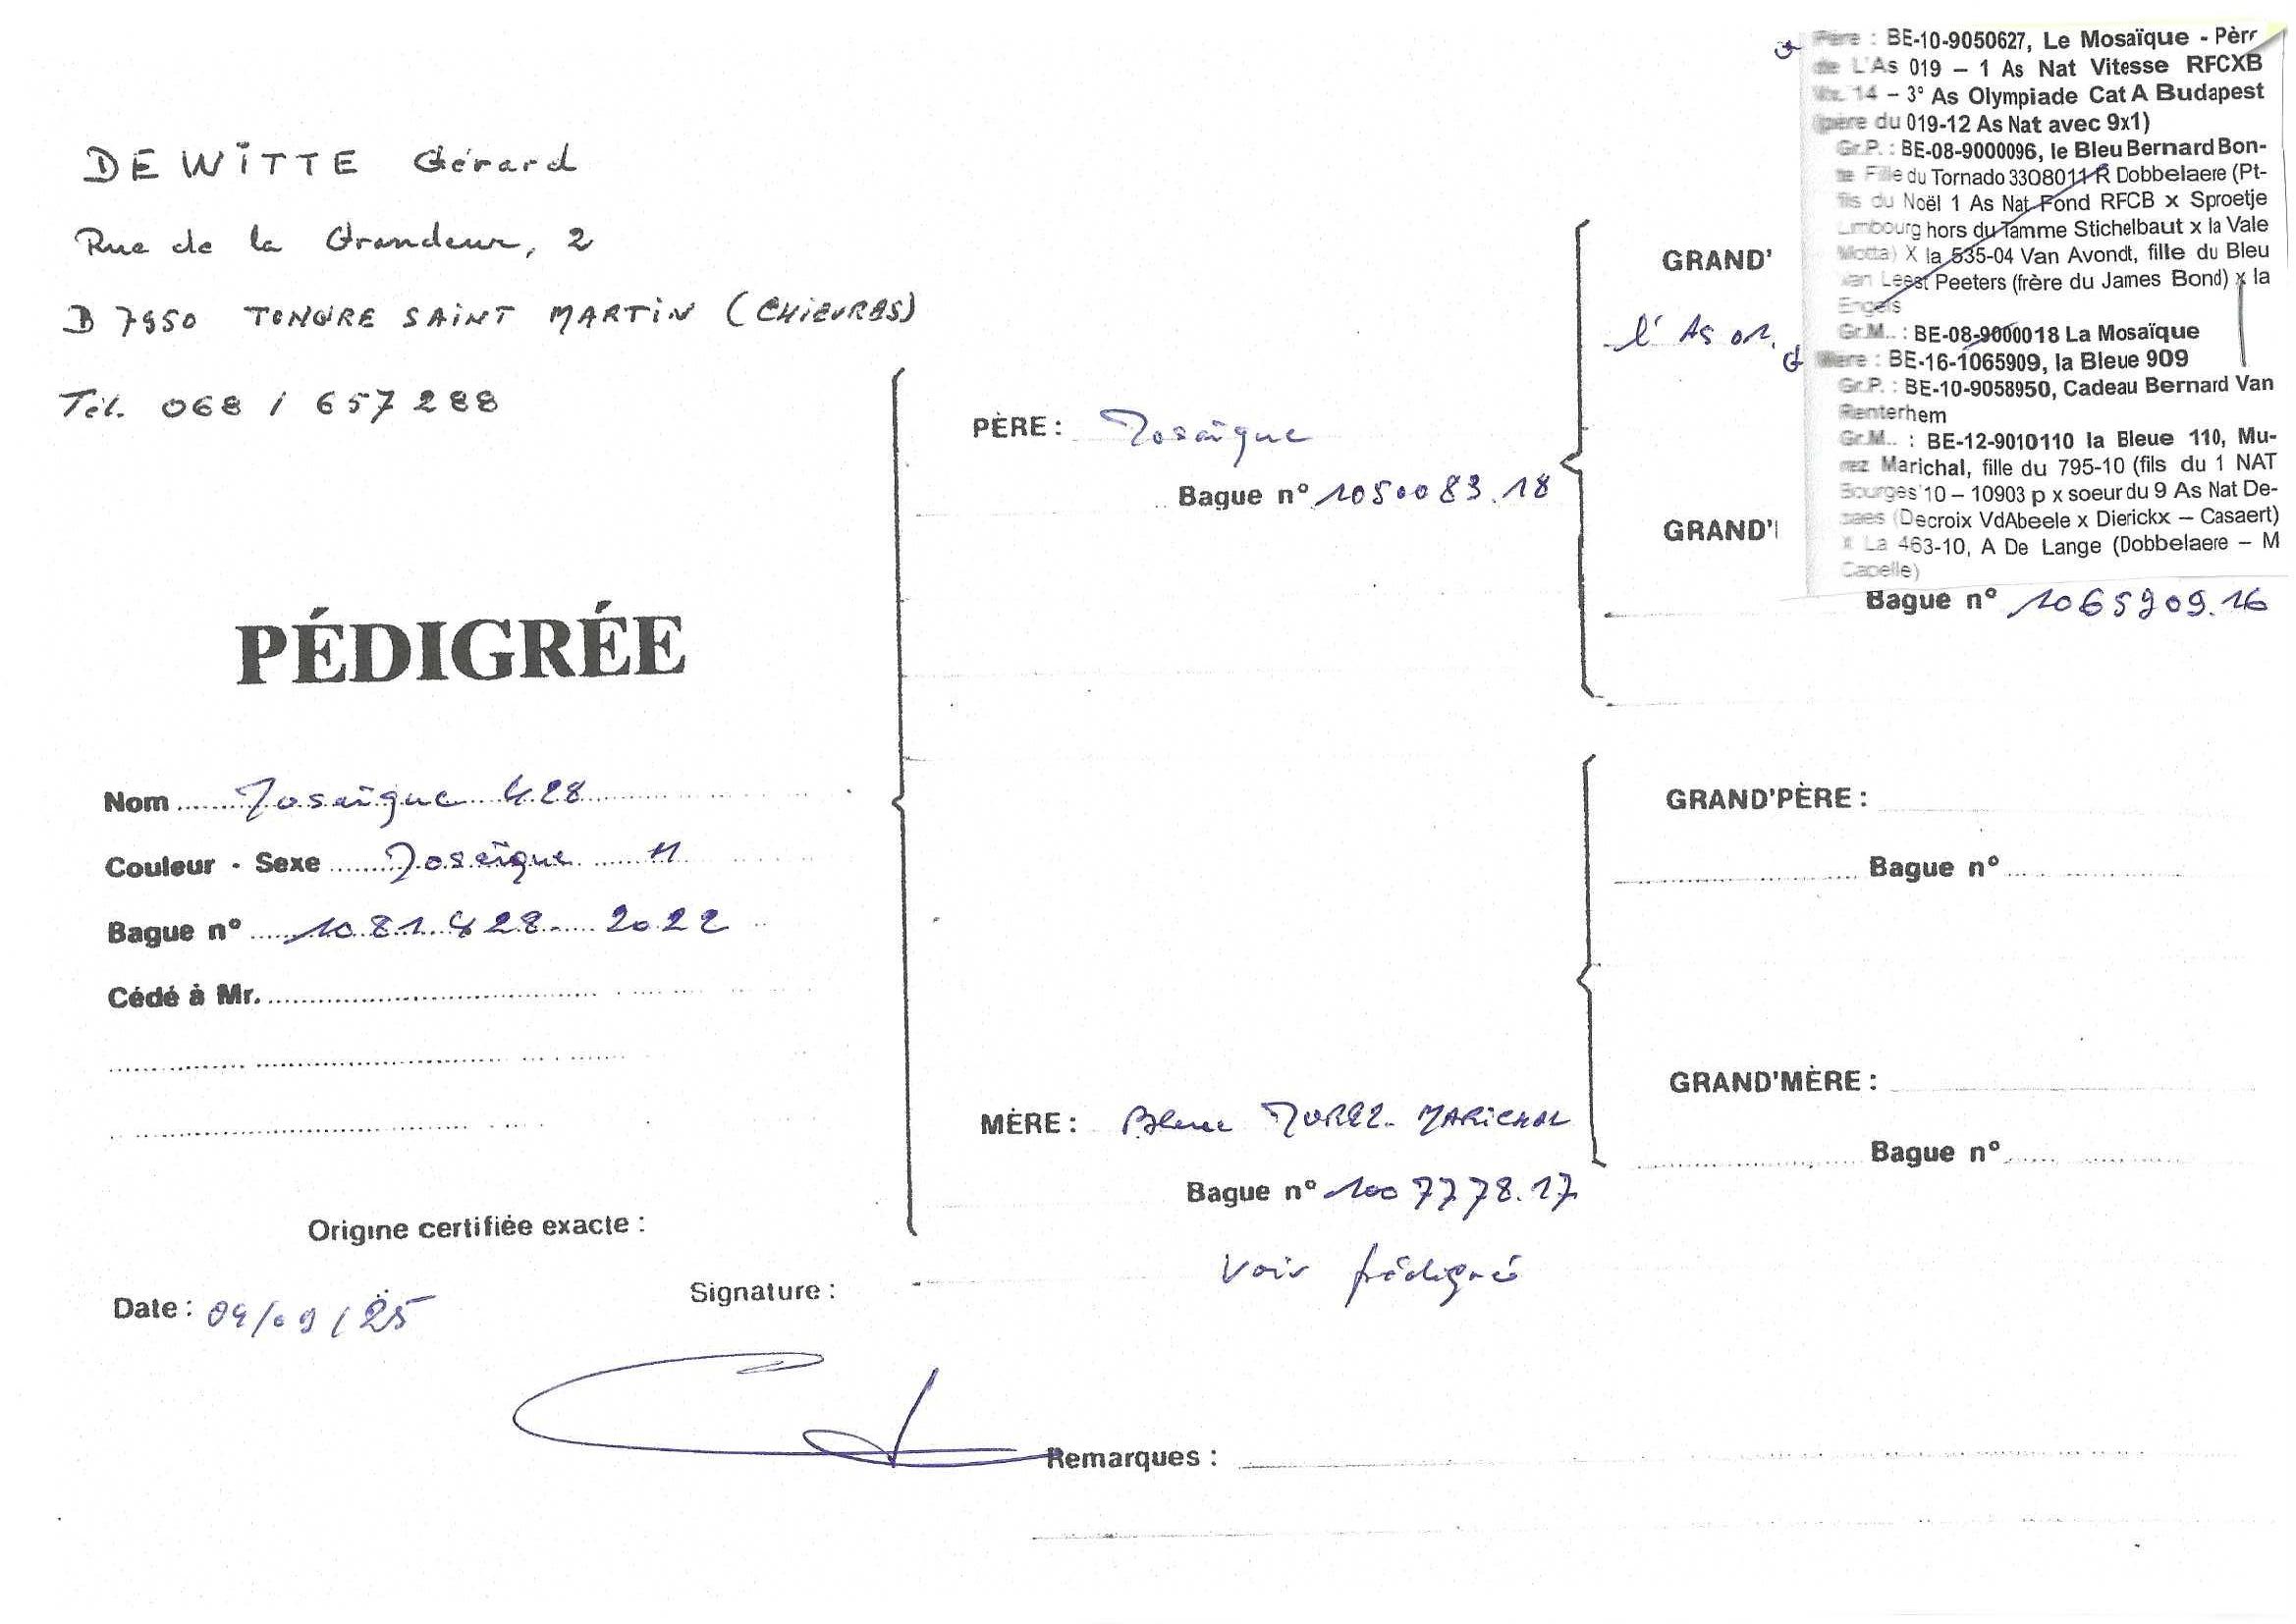 DEWITTE Gérard
Rue de la Grandeur, 2
B 7950 TONGRE SAINT MARTIN (CHIEVRES)
Tél. 068 / 657288
PÉDIGRÉE
Nom Mosaïque 428
Couleur - Sexe Mosaïque M
Bague n° 1081428 2022
Cédé à Mr.
Origine certifiée exacte :
Date : 04/09/25
Signature :
PÈRE : Mosaïque
Bague n° 1050083.18
MÈRE : Bleue MUREZ-MARICHAL
Bague n° 1007778.17
Voir pédigré
GRAND'
l'As
GRAND'
Père : BE-10-9050627, Le Mosaïque - Père
de L'As 019 – 1 As Nat Vitesse RFCXB
14 – 3° As Olympiade Cat A Budapest
(père du 019-12 As Nat avec 9x1)
Gr.P. : BE-08-9000096, le Bleu Bernard Bon-
te Fille du Tornado 3308011 R Dobbelaere (Pt-
fils du Noël 1 As Nat Fond RFCB x Sproetje
Limbourg hors du Tamme Stichelbaut x la Vale
Motta) X la 535-04 Van Avondt, fille du Bleu
Van Leest Peeters (frère du James Bond) x la
Engels
Gr.M.. : BE-08-9000018 La Mosaïque
Mère : BE-16-1065909, la Bleue 909
Gr.P. : BE-10-9058950, Cadeau Bernard Van
Renterhem
Gr.M.. : BE-12-9010110 la Bleue 110, Mu-
rez Marichal, fille du 795-10 (fils du 1 NAT
Bourges'10 – 10903 p x soeur du 9 As Nat De-
saes (Decroix VdAbeele x Dierickx – Casaert)
X La 463-10, A De Lange (Dobbelaere – M
Capelle)
Bague n° 1065909.16
GRAND'PÈRE :
Bague n°
GRAND'MÈRE :
Bague n°
Remarques :